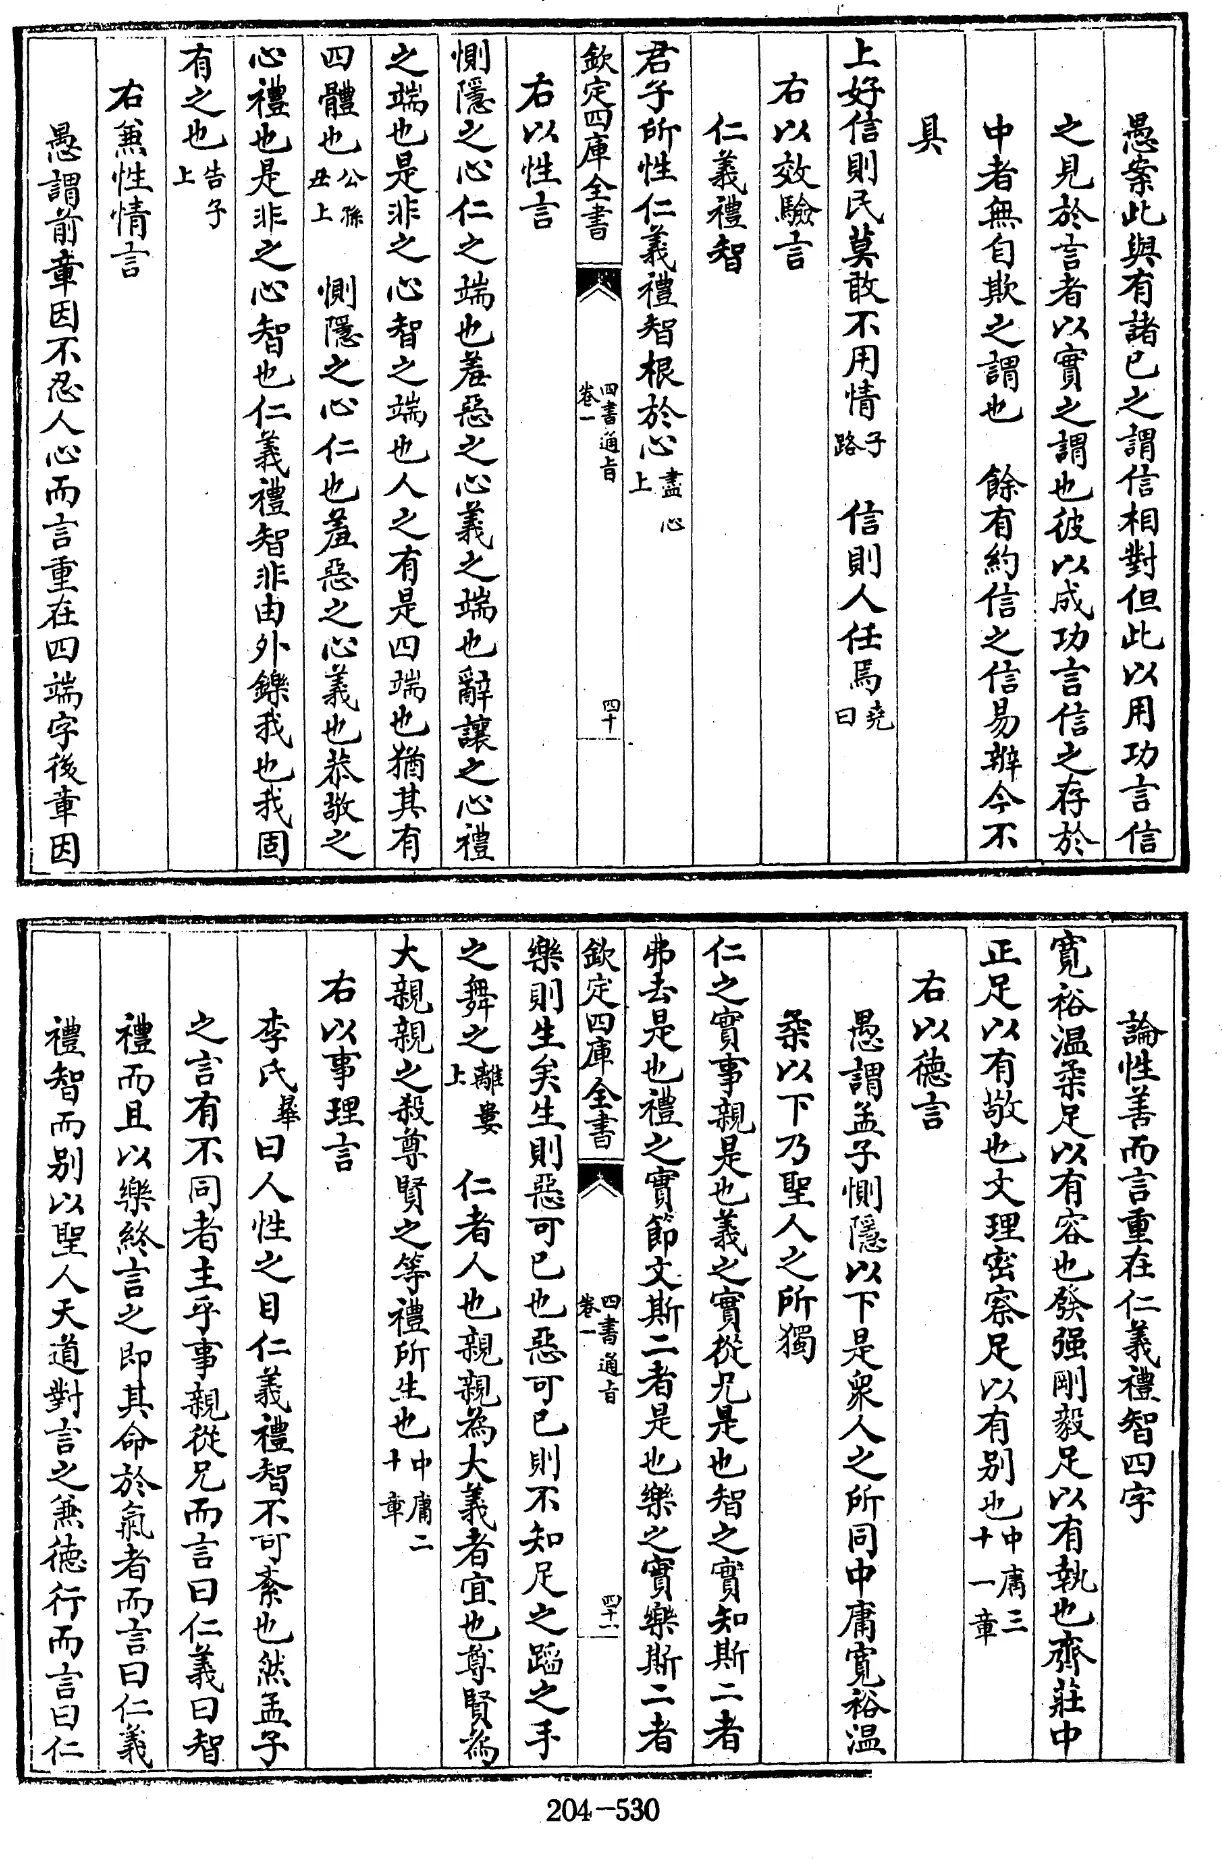 愚案此與有諸已之謂信相對但此以用功言信
之見於言者以實之謂也彼以成功言信之存於
中者無自欺之謂也　餘有約信之信易辨今不
具
上好信則民莫敢不用情子路　信則人任焉堯曰
右以效驗言
仁義禮智
君子所性仁義禮智根於心盡心上
欽定四庫全書　四書通旨卷一　四十
右以性言
惻隱之心仁之端也羞惡之心義之端也辭讓之心禮
之端也是非之心智之端也人之有是四端也猶其有
四體也公孫丑上　惻隱之心仁也羞惡之心義也恭敬之
心禮也是非之心智也仁義禮智非由外鑠我也我固
有之也告子上
右兼性情言
愚謂前章因不忍人心而言重在四端字後章因
論性善而言重在仁義禮智四字
寛裕温柔足以有容也發强剛毅足以有執也齊莊中
正足以有敬也文理密察足以有别也中庸三十一章
右以德言
愚謂孟子惻隱以下是衆人之所同中庸寛裕温
柔以下乃聖人之所獨
仁之實事親是也義之實從兄是也智之實知斯二者
弗去是也禮之實節文斯二者是也樂之實樂斯二者
欽定四庫全書　四書通旨卷一　四十一
樂則生矣生則惡可已也惡可已則不知足之蹈之手
之舞之離婁上　仁者人也親親為大義者宜也尊賢為
大親親之殺尊賢之等禮所生也中庸二十章
右以事理言
李氏曅曰人性之目仁義禮智不可紊也然孟子
之言有不同者主乎事親從兄而言曰仁義曰智
禮而且以樂終言之即其命於氣者而言曰仁義
禮智而别以聖人天道對言之兼德行而言曰仁
204-530